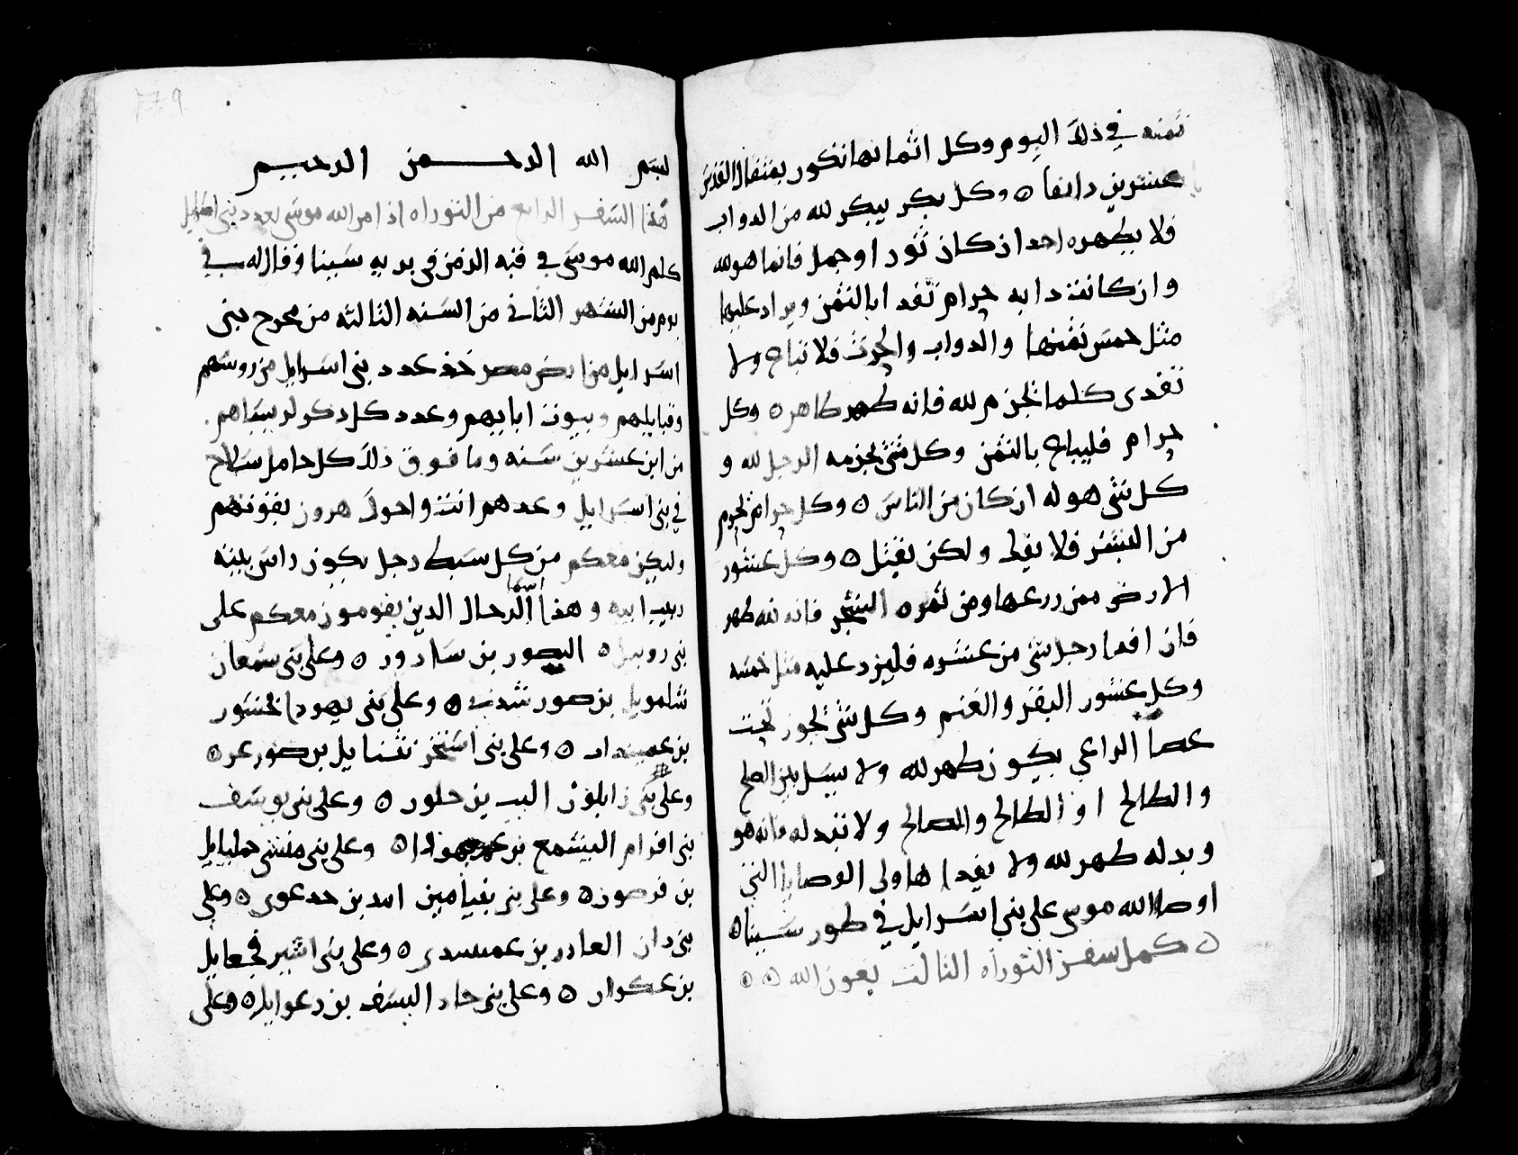 ثمنه في ذلك اليوم وكل اثمانها تكون بمثقال القدس
عشرين دانقا ٥ وكل بكر يبكر لله من الدواب
فلا يطهره احد ان كان ثور او حمل فانما هو لله
وان كانت دابه حرام تفدا بالثمن ويزاد عليها
مثل خمس ثمنها والدواب والحرث فلا تباع ولا
تفدى كلما تحرم لله فانه طهر طاهر ٥ وكل
حرام فليباع بالثمن وكل شي يحرمه الرجل لله و
كل شي هو له ان كان من الناس ٥ وكل حرام تحرم
من البشر فلا يفط ولكن يقتل ٥ وكل عشور
الارض ممن زرعها ومن ثمره الشجر فانه لله طهر
فان افدا رجل شي من عشوره فليزد عليه مثل خمسه
وكل عشور البقر والغنم وكل شي تجوز تحت
عصا الراعي يكون طهر لله ولا يبدل بين الصلح
والطالح او الطالح والصالح ولا تبدله فانه هو
وبدله طهر لله ولا يفدا هاولى الوصايا التي
اوصا الله موسى على بني اسرايل في طور سينا ٥
٥ كمل سفر التوراه الثالث بعون الله ٥ ٥
١٧٩
بسم الله الرحمن الرحيم
هذا السفر الرابع من التوراه اذ امر الله موسى بعدد بني اسرايل
كلم الله موسى في قبه الزمن في بريه سينا وقال له في
يوم من الشهر الثاني من السنه الثالثه من مخرج بني
اسرايل من ارض مصر خذ عدد بني اسرايل من روسهم
وقبايلهم وبيوت ابايهم وعدد كل ذكر
من ابن عشرين سنه وما فوق ذلك كل حامل سلاح
في بني اسرايل وعدهم انت واخوك هرون بقوتهم
وليكن معكم من كل سبط رجل يكون راس بيته
وبيت ابيه وهذا اسما الرجال الذين يقومون معكم على
بني روبيل ٥ اليصور بن ساذور ٥ وعلى بني شمعان
شلمويل بن صور شدى ٥ وعلى بني يهودا نحشور
بن عميناداب ٥ وعلى بني اشخر نثنايل بن صورعر ٥
وعلى بني زابلون اليب بن حلور ٥ وعلى بني يوسف
بني افرام اليشمع بن عميهودا ٥ وعلى بني منشى حمليايل
بن فرصور ٥ وعلى بني بنيامين ابيد بن جدعوى ٥ وعلى
بني دان العادر بن عميسدى ٥ وعلى بني اشير فجعايل
بن عكران ٥ وعلى بني جاد اليسف بن دعوايل ٥ وعلى